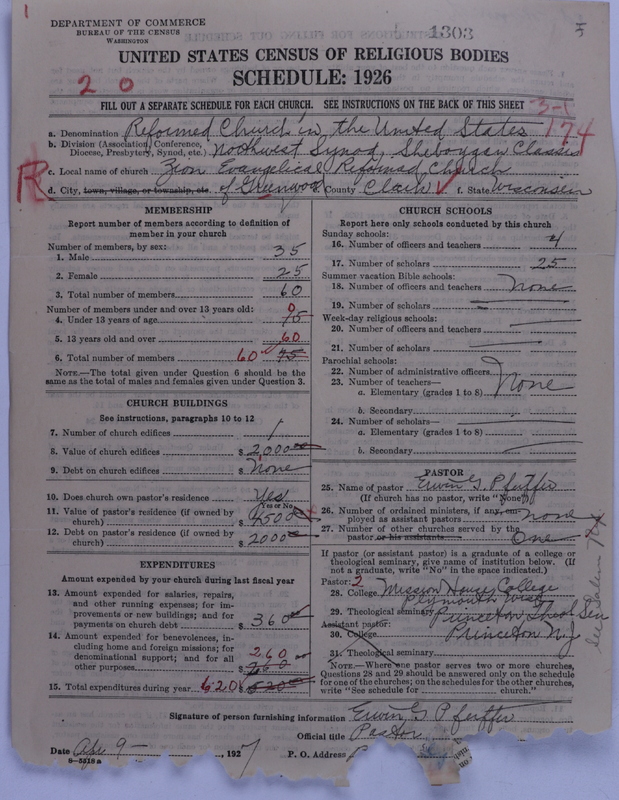 1
DEPARTMENT OF COMMERCE
BUREAU OF THE CENSUS
WASHINGTON
1303
UNITED STATES CENSUS OF RELIGIOUS BODIES
SCHEDULE: 1926
2 0
FILL OUT A SEPARATE SCHEDULE FOR EACH CHURCH. SEE INSTRUCTIONS ON THE BACK OF THIS SHEET
3-1
174
a. Denomination Reformed Church in the United States
b. Division (Association, Conference, Diocese, Presbytery, Synod, etc.) Northwest Synod, Sheboygan Classis
c. Local name of church Zion Evangelical Reformed Church
d. City, town, village, or township, etc. of Greenwood County Clark f. State Wisconsin
MEMBERSHIP
Report number of members according to definition of
member in your church
Number of members, by sex:
1. Male 35
2. Female 25
3. Total number of members 60
Number of members under and over 13 years old:
4. Under 13 years of age 0 15
5. 13 years old and over 60
6. Total number of members 60 75
NOTE.—The total given under Question 6 should be the
same as the total of males and females given under Question 3.
CHURCH BUILDINGS
See instructions, paragraphs 10 to 12
7. Number of church edifices 1
8. Value of church edifices $ 2,000
9. Debt on church edifices $ None
10. Does church own pastor's residence Yes
(Yes or No)
11. Value of pastor's residence (if owned by
church) $ 4500
12. Debt on pastor's residence (if owned by
church) $ 2000
EXPENDITURES
Amount expended by your church during last fiscal year
13. Amount expended for salaries, repairs,
and other running expenses; for im-
provements or new buildings; and for
payments on church debt $ 360
14. Amount expended for benevolences, in-
cluding home and foreign missions; for
denominational support; and for all
other purposes 260 $ 260
15. Total expenditures during year 620 $ 620
CHURCH SCHOOLS
Report here only schools conducted by this church
Sunday schools:
16. Number of officers and teachers 4
17. Number of scholars 25
Summer vacation Bible schools:
18. Number of officers and teachers None
19. Number of scholars
Week-day religious schools:
20. Number of officers and teachers
21. Number of scholars
Parochial schools:
22. Number of administrative officers
23. Number of teachers—
a. Elementary (grades 1 to 8) None
b. Secondary
24. Number of scholars—
a. Elementary (grades 1 to 8)
b. Secondary
PASTOR
25. Name of pastor Erwin G. Pfeiffer
(If church has no pastor, write "None")
26. Number of ordained ministers, if any, em-
ployed as assistant pastors none
27. Number of other churches served by the
pastor or his assistants One
If pastor (or assistant pastor) is a graduate of a college or
theological seminary, give name of institution below. (If
not a graduate, write "No" in the space indicated.)
Pastor: 2
28. College Mission House College
Plymouth Wis
29. Theological seminary Princeton Theol Sem
Assistant pastor:
30. College Princeton NJ
31. Theological seminary
NOTE.—Where one pastor serves two or more churches,
Questions 28 and 29 should be answered only on the schedule
for one of the churches; on the schedules for the other churches,
write "See schedule for church."
Signature of person furnishing information Erwin G Pfeiffer
Official title Pastor
Date Apr 9 , 1927 P. O. Address
8-5518 a